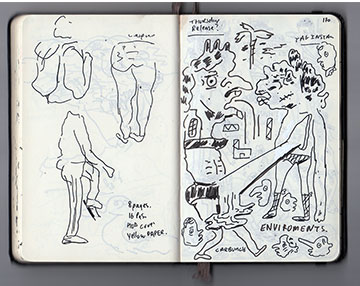 8 pages.
16 Pgs.
Yellow PAPER.
Thursday
Release?
130
TAG INSTA
ENVIROMENTS.